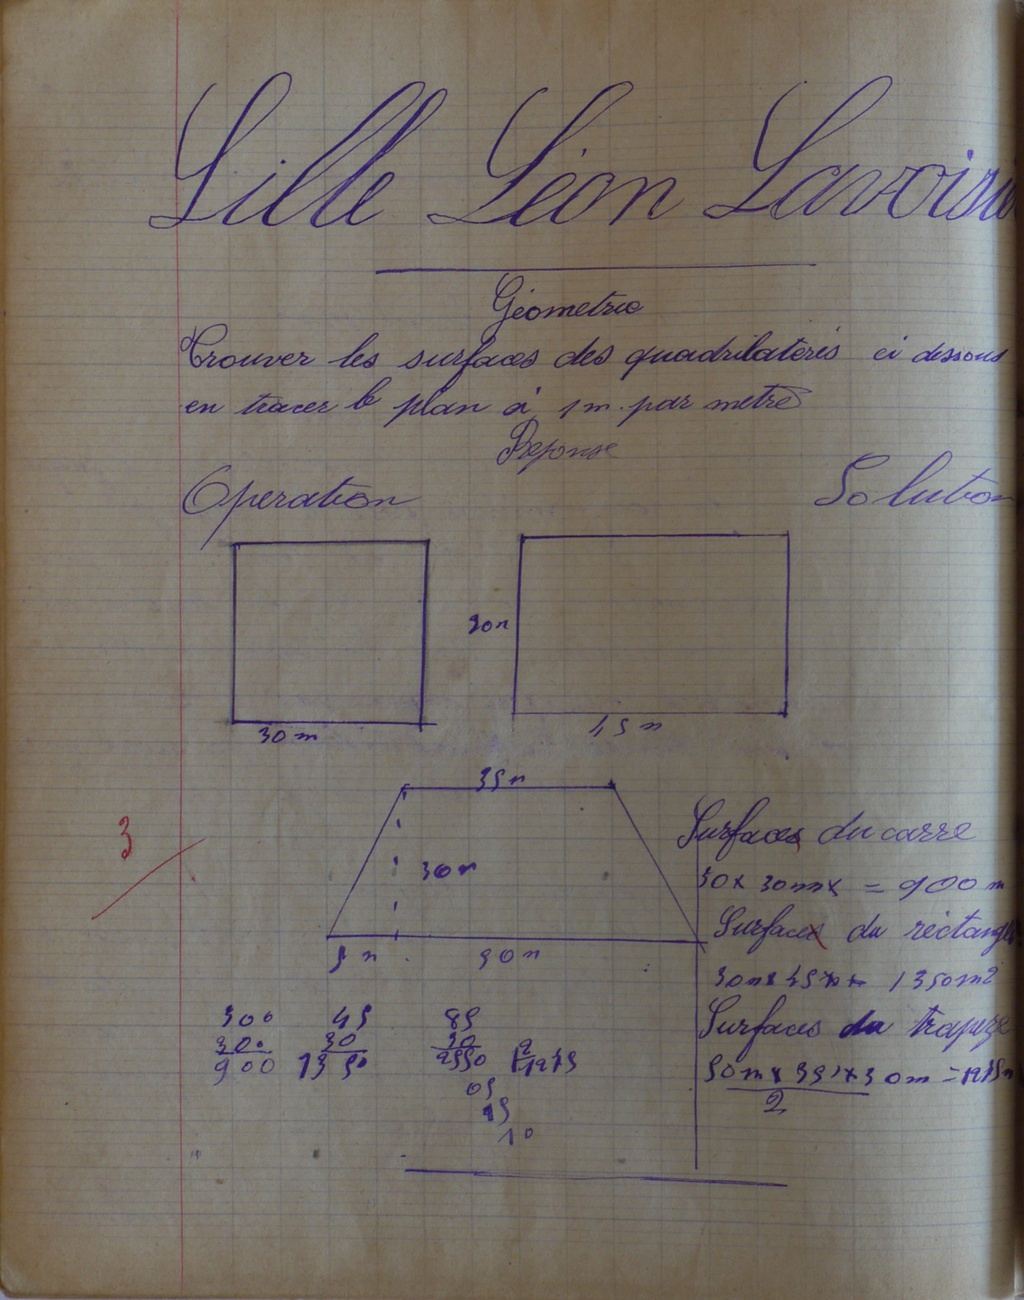 Lille Léon Lavoisi
Géometrie
Trouver les surfaces des quadrilatères ci dessous
en tracer le plan à 1 m. par metre
Reponse
Operation Solution
30 m
45 m
35 m
30 m
50 m
Surfaces du carre
30 x = 900 m
Surfaces du rectangle
1350 m2
Surfaces du trapeze
2
300 45 85
300 30 30
900 1350 2550 2
05 1275
15
10
3